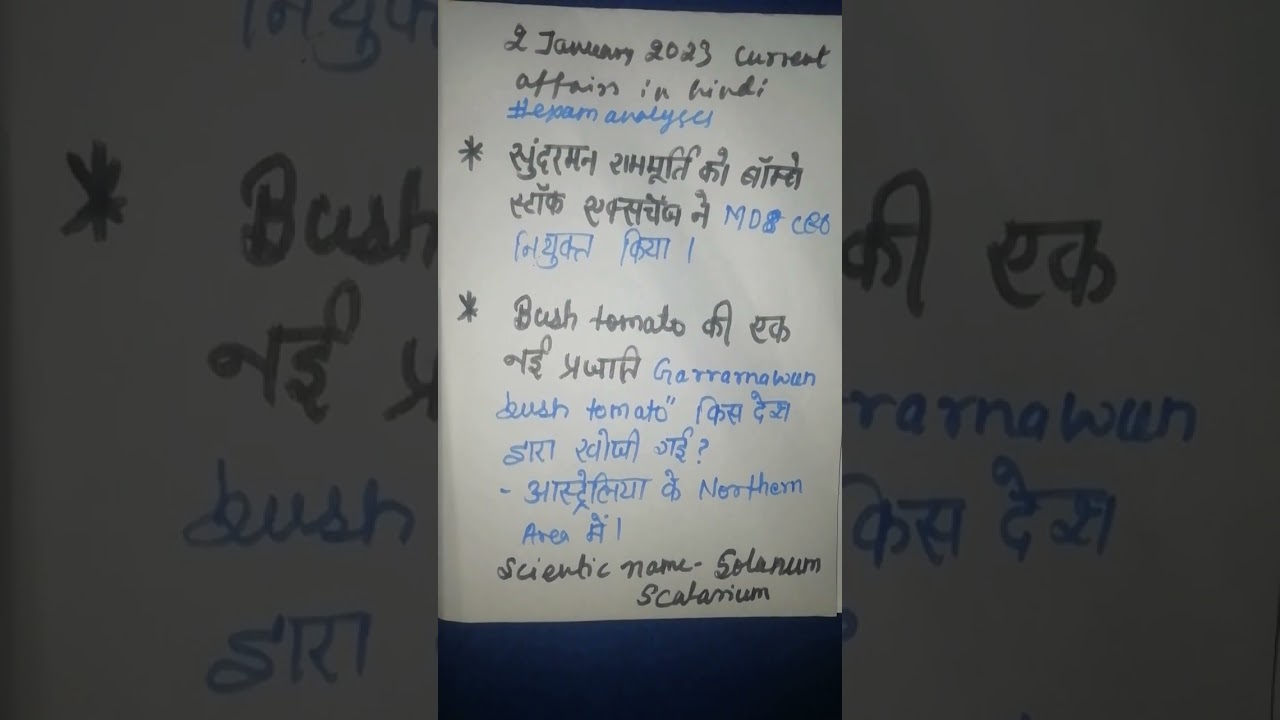 2 January 2023 current
affairs in hindi
#exam analyses
* सुंदरमन राममूर्ति को बॉम्बे
स्टॉक एक्सचेंज ने MD& CEO
नियुक्त किया।
* Bush tomato की एक
नई प्रजाति Garrarnawun
bush tomato" किस देश
द्वारा खोजी गई?
- आस्ट्रेलिया के Northern
Area में।
Scientic name- Solanum
Scalarium